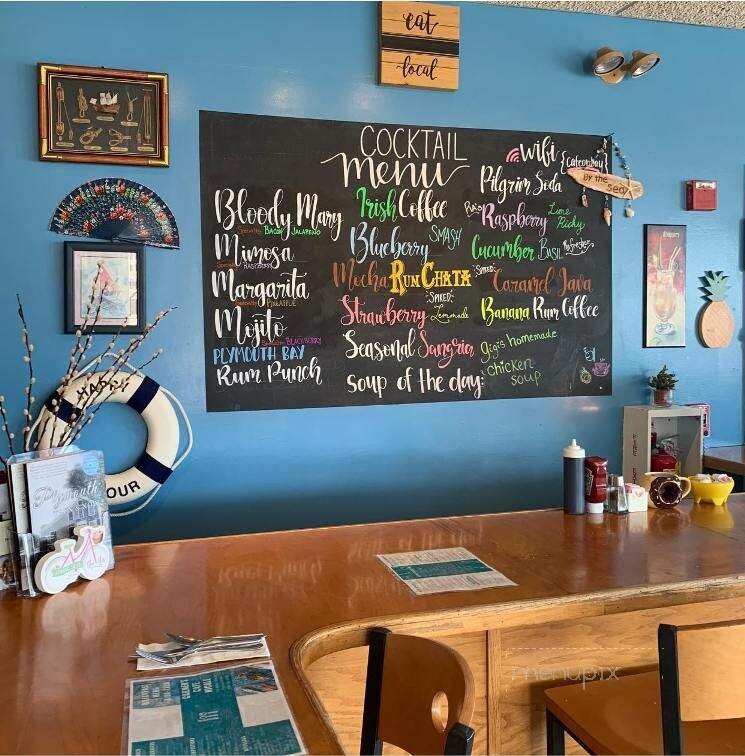 eat
local
COCKTAIL
menu
Bloody Mary
Specialty: BACON JALAPEÑO
Mimosa
Specialty: RASPBERRY
Margarita
Specialty: PINEAPPLE
Mojito
Specialty: BLACKBERRY
PLYMOUTH BAY
Rum Punch
Irish Coffee
Blueberry SMASH
Mocha RUMCHATA
"SPIKED"
Strawberry Lemonade
Seasonal Sangria
soup of the day:
wifi
Pilgrim Soda
Raspberry Lime Ricky
Cucumber BASIL
"SPIKED" Caramel Java
Banana Rum Coffee
gigi's homemade
chicken
soup
by the Sea
HAPPY
OUR
Plymouth
menupix